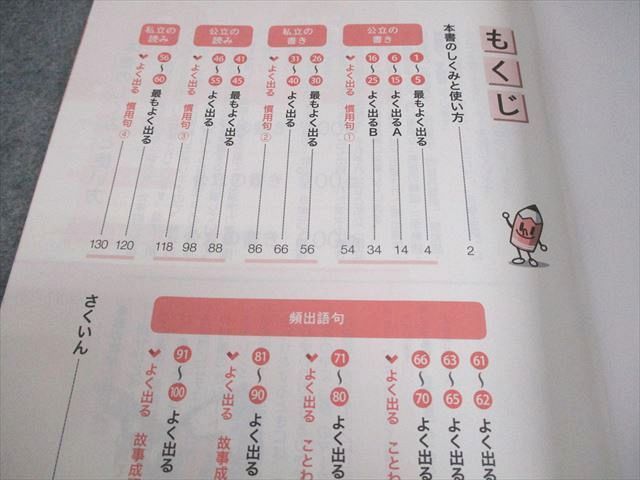 もくじ
本書のしくみと使い方 2
公立の書き
1〜5 最もよく出る 4
6〜15 よく出るA 14
16〜25 よく出るB 34
よく出る 慣用句① 54
私立の書き
26〜30 最もよく出る 56
31〜40 よく出る 66
よく出る 慣用句② 86
公立の読み
41〜45 最もよく出る 88
46〜55 よく出る 98
よく出る 慣用句③ 118
私立の読み
56〜60 最もよく出る 120
よく出る 慣用句④ 130
頻出語句
61〜62 よく出る
63〜65 よく出る
66〜70 よく出る
よく出る ことわ
71〜80 よく出る
よく出る ことわ
81〜90 よく出る
よく出る 故事成
91〜100 よく出る
よく出る 故事成
さくいん